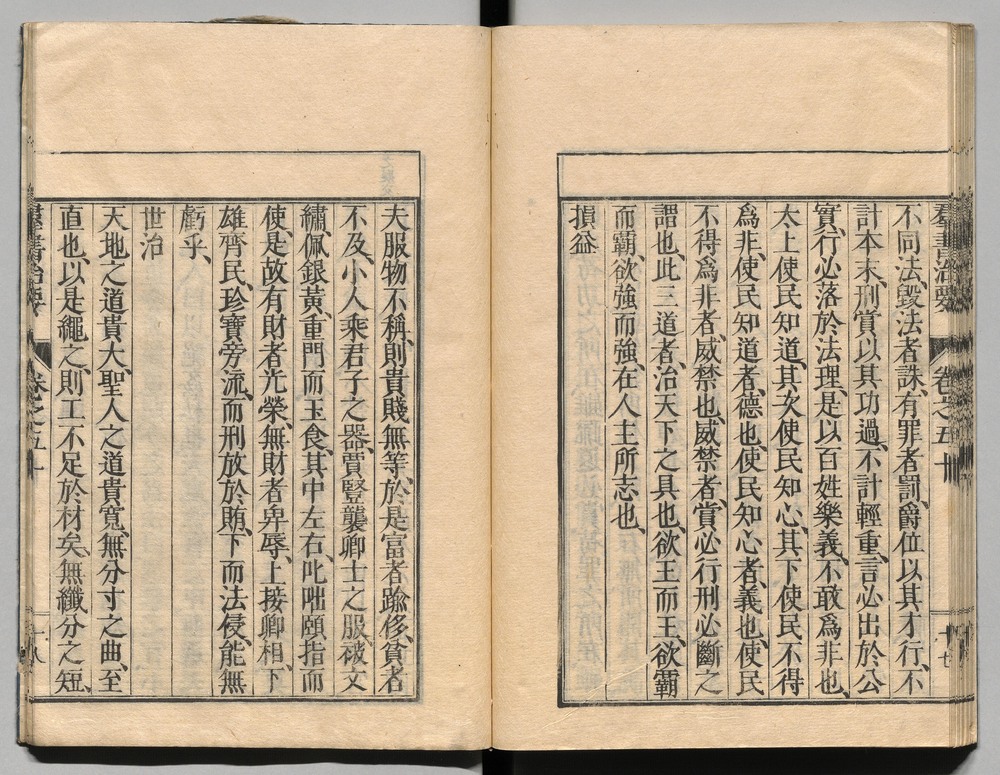 羣書治要 卷之五十 十七
不同法、毀法者誅、有罪者罰、爵位以其才行、不
計本末、刑賞以其功過、不計輕重、言必出於公
實、行必落於法理、是以百姓樂義、不敢爲非也、
太上使民知道、其次使民知心、其下使民不得
爲非、使民知道者、德也、使民知心者、義也、使民
不得爲非者、威禁也、威禁者、賞必行刑必斷之
謂也、此三道者、治天下之具也、欲王而王、欲霸
而霸、欲強而強、在人主所志也、
損益
夫服物不稱、則貴賤無等、於是富者踰侈、貧者
不及、小人乘君子之器、賈豎襲卿士之服、被文
繡、佩銀黃、重門而玉食、其中左右、叱咄頤指而
使、是故有財者光榮、無財者卑辱、上接卿相、下
雄齊民、珍寶旁流、而刑放於賄、下而法侵、能無
虧乎、
世治
天地之道貴大、聖人之道貴寬、無分寸之曲、至
直也、以是繩之、則工不足於材矣、無纖分之短、
羣書治要 卷之五十 十八